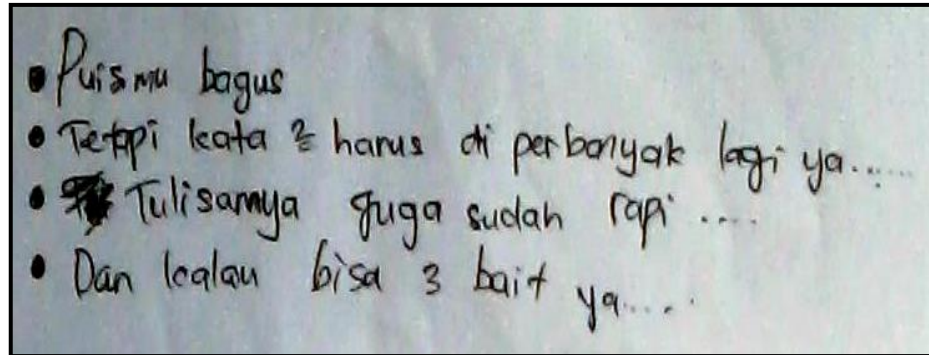 • Puismu bagus
• Tetapi kata2 harus di perbanyak lagi ya......
• Tulisannya juga sudah rapi ....
• Dan kalau bisa 3 bait ya.....